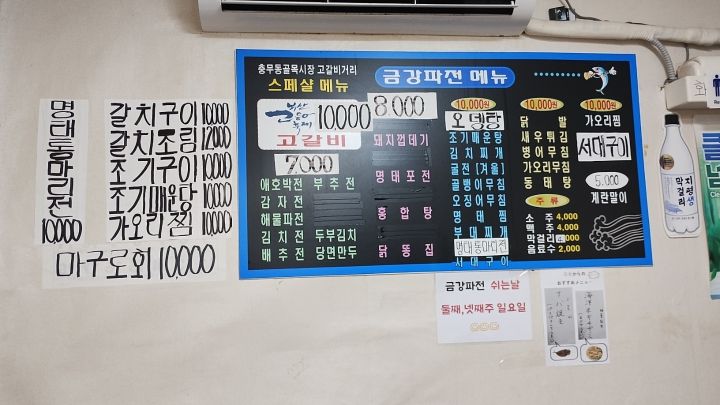 명태통마리전
10,000
갈치구이 10,000
갈치조림 12,000
조기구이 10,000
조기매운탕 10,000
가오리찜 10,000
마구로회 10,000
충무동골목시장 고갈비거리
스페셜 메뉴
금강파전 메뉴
10,000
고갈비
7,000
애호박전 부추전
감자전
해물파전
김치전 두부김치
배추전 당면만두
8,000
돼지껍데기
명태포전
홍합탕
닭똥집
10,000원
오뎅탕
조기매운탕
김치찌개
굴전 [겨울]
골뱅이무침
오징어무침
명태찜
부대찌개
명태통마리전
서대구이
10,000원
닭발
새우튀김
병어무침
가오리무침
동태탕
주류
소주 4,000
맥주 4,000
막걸리
음료수 2,000
10,000원
가오리찜
서대구이
5,000
계란말이
금강파전 쉬는날
둘째,넷째주 일요일
おすすめメニュー
지평생
막걸리
화